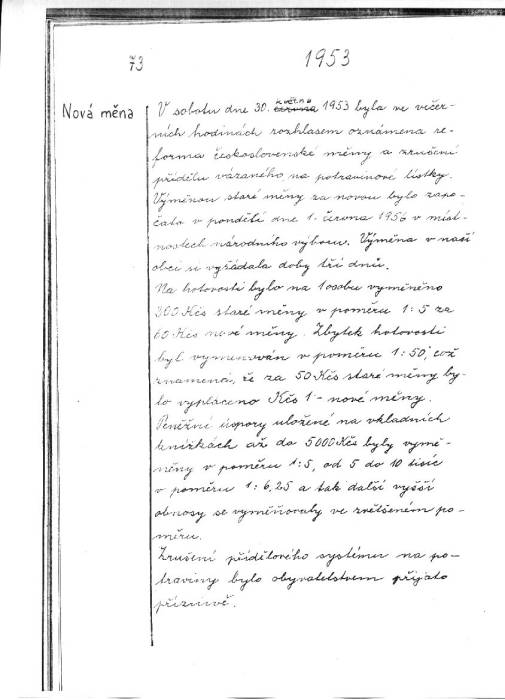 73
1953
Nová měna
května
V sobotu dne 30. června 1953 byla ve večer-
ních hodinách rozhlasem oznámena re-
forma československé měny a zrušení
přídělu vázaného na potravinové lístky.
Výměnou staré měny za novou bylo zapo-
čato v pondělí dne 1. června 1956 v míst-
nostech národního výboru. Výměna v naší
obci si vyžádala doby tří dnů.
Na hotovosti bylo na 1 osobu vyměněno
300 Kčs staré měny v poměru 1:5 za
60 Kčs nové měny. Zbytek hotovosti
byl vyměňován v poměru 1:50, což
znamená, že za 50 Kčs staré měny by-
lo vypláceno Kčs 1- nové měny.
Peněžní úspory uložené na vkladních
knížkách až do 5000 Kčs byly vymě-
něny v poměru 1:5, od 5 do 10 tisíc
v poměru 1:6,25 a tak další vyšší
obnosy se vyměňovaly ve zvětšeném po-
měru.
Zrušení přídělového systému na po-
traviny bylo obyvatelstvem přijato
příznivě.